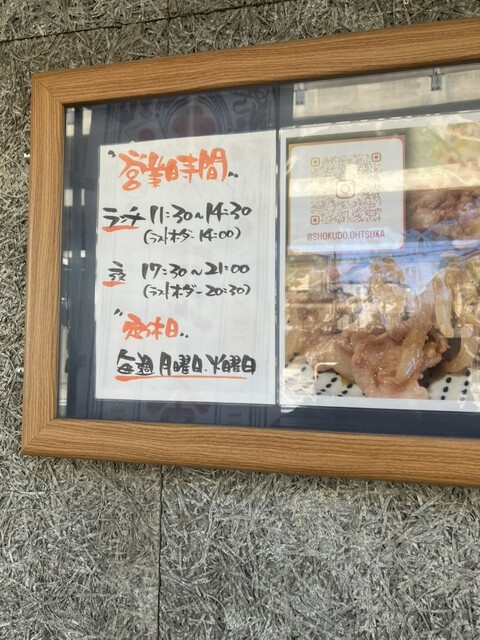 "営業時間"
ランチ 11:30~14:30
(ラストオーダー 14:00)
夜 17:30~21:00
(ラストオーダー 20:30)
"定休日"
毎週 月曜日.火曜日
@SHOKUDO.OHTSUKA